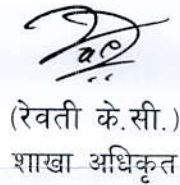 (रेवती के.सी.)
शाखा अधिकृत